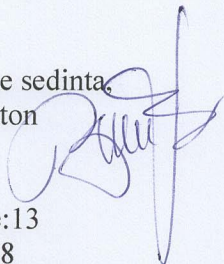 e sedinta,
ton
:13
8